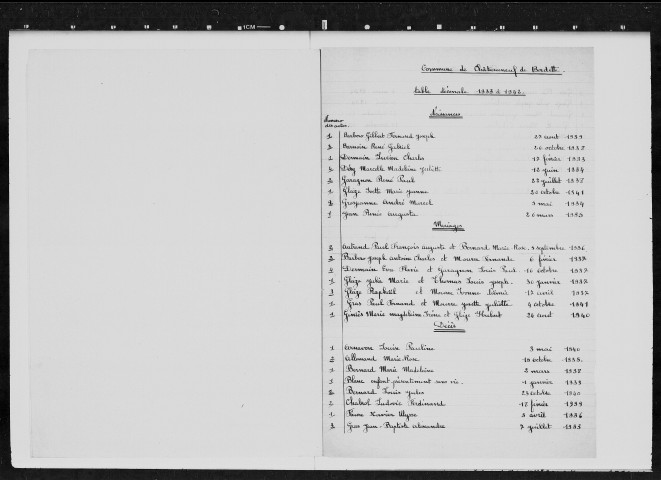 Commune de Châteauneuf de Bordette.
table décennale 1933 à 1942.
Naissances
Numéro des actes.
1 Barbero Gilbert Fernand Joseph 27 aout 1939
2 René Gabriel 26 octobre 1937
1 Dormain Lucien Charles 13 février 1933
2 Marcelle Madeleine Juliette 12 juin 1934
2 Garagnon René Paul 23 juillet 1937
1 Gleize Yvette Marie Jeanne 20 octobre 1941
2 André Marcel 3 mai 1934
1 Jean Denis Auguste 20 mars 1933
Mariages
2 Autrand Paul François Auguste et Bernard Marie Rose. 3 septembre 1936
2 Barbero Joseph Antoine Charles et Mourre Fernande 6 février 1937
4 Dormain Eva Marie et Garagnon Louis Paul. 16 octobre 1937
1 Gleize Julie Marie et Thomas Louis Joseph. 30 janvier 1937
3 Gleize Raphaël et Mourre Yvonne 17 avril 1937
1 Gras Paul Fernand et Mourre Yvette Juliette 4 octobre 1941
1 Marie Magdeleine Irène et Gleize Hubert 24 aout 1940
Décès
1 Arnavon Louise Pauline 3 mai 1940
2 Allemand Marie Rose 18 octobre 1933.
1 Bernard Marie Madeleine 2 mars 1937
1 Blanc enfant présentement sans vie. 1 janvier 1939
2 Bernard Louis Jules 23 octobre 1940
2 Chabrol Ludovic Ferdinand 17 février 1939
1 Xavier Ulysse 3 avril 1936
3 Gras Jean-Baptiste Alexandre 7 juillet 1935